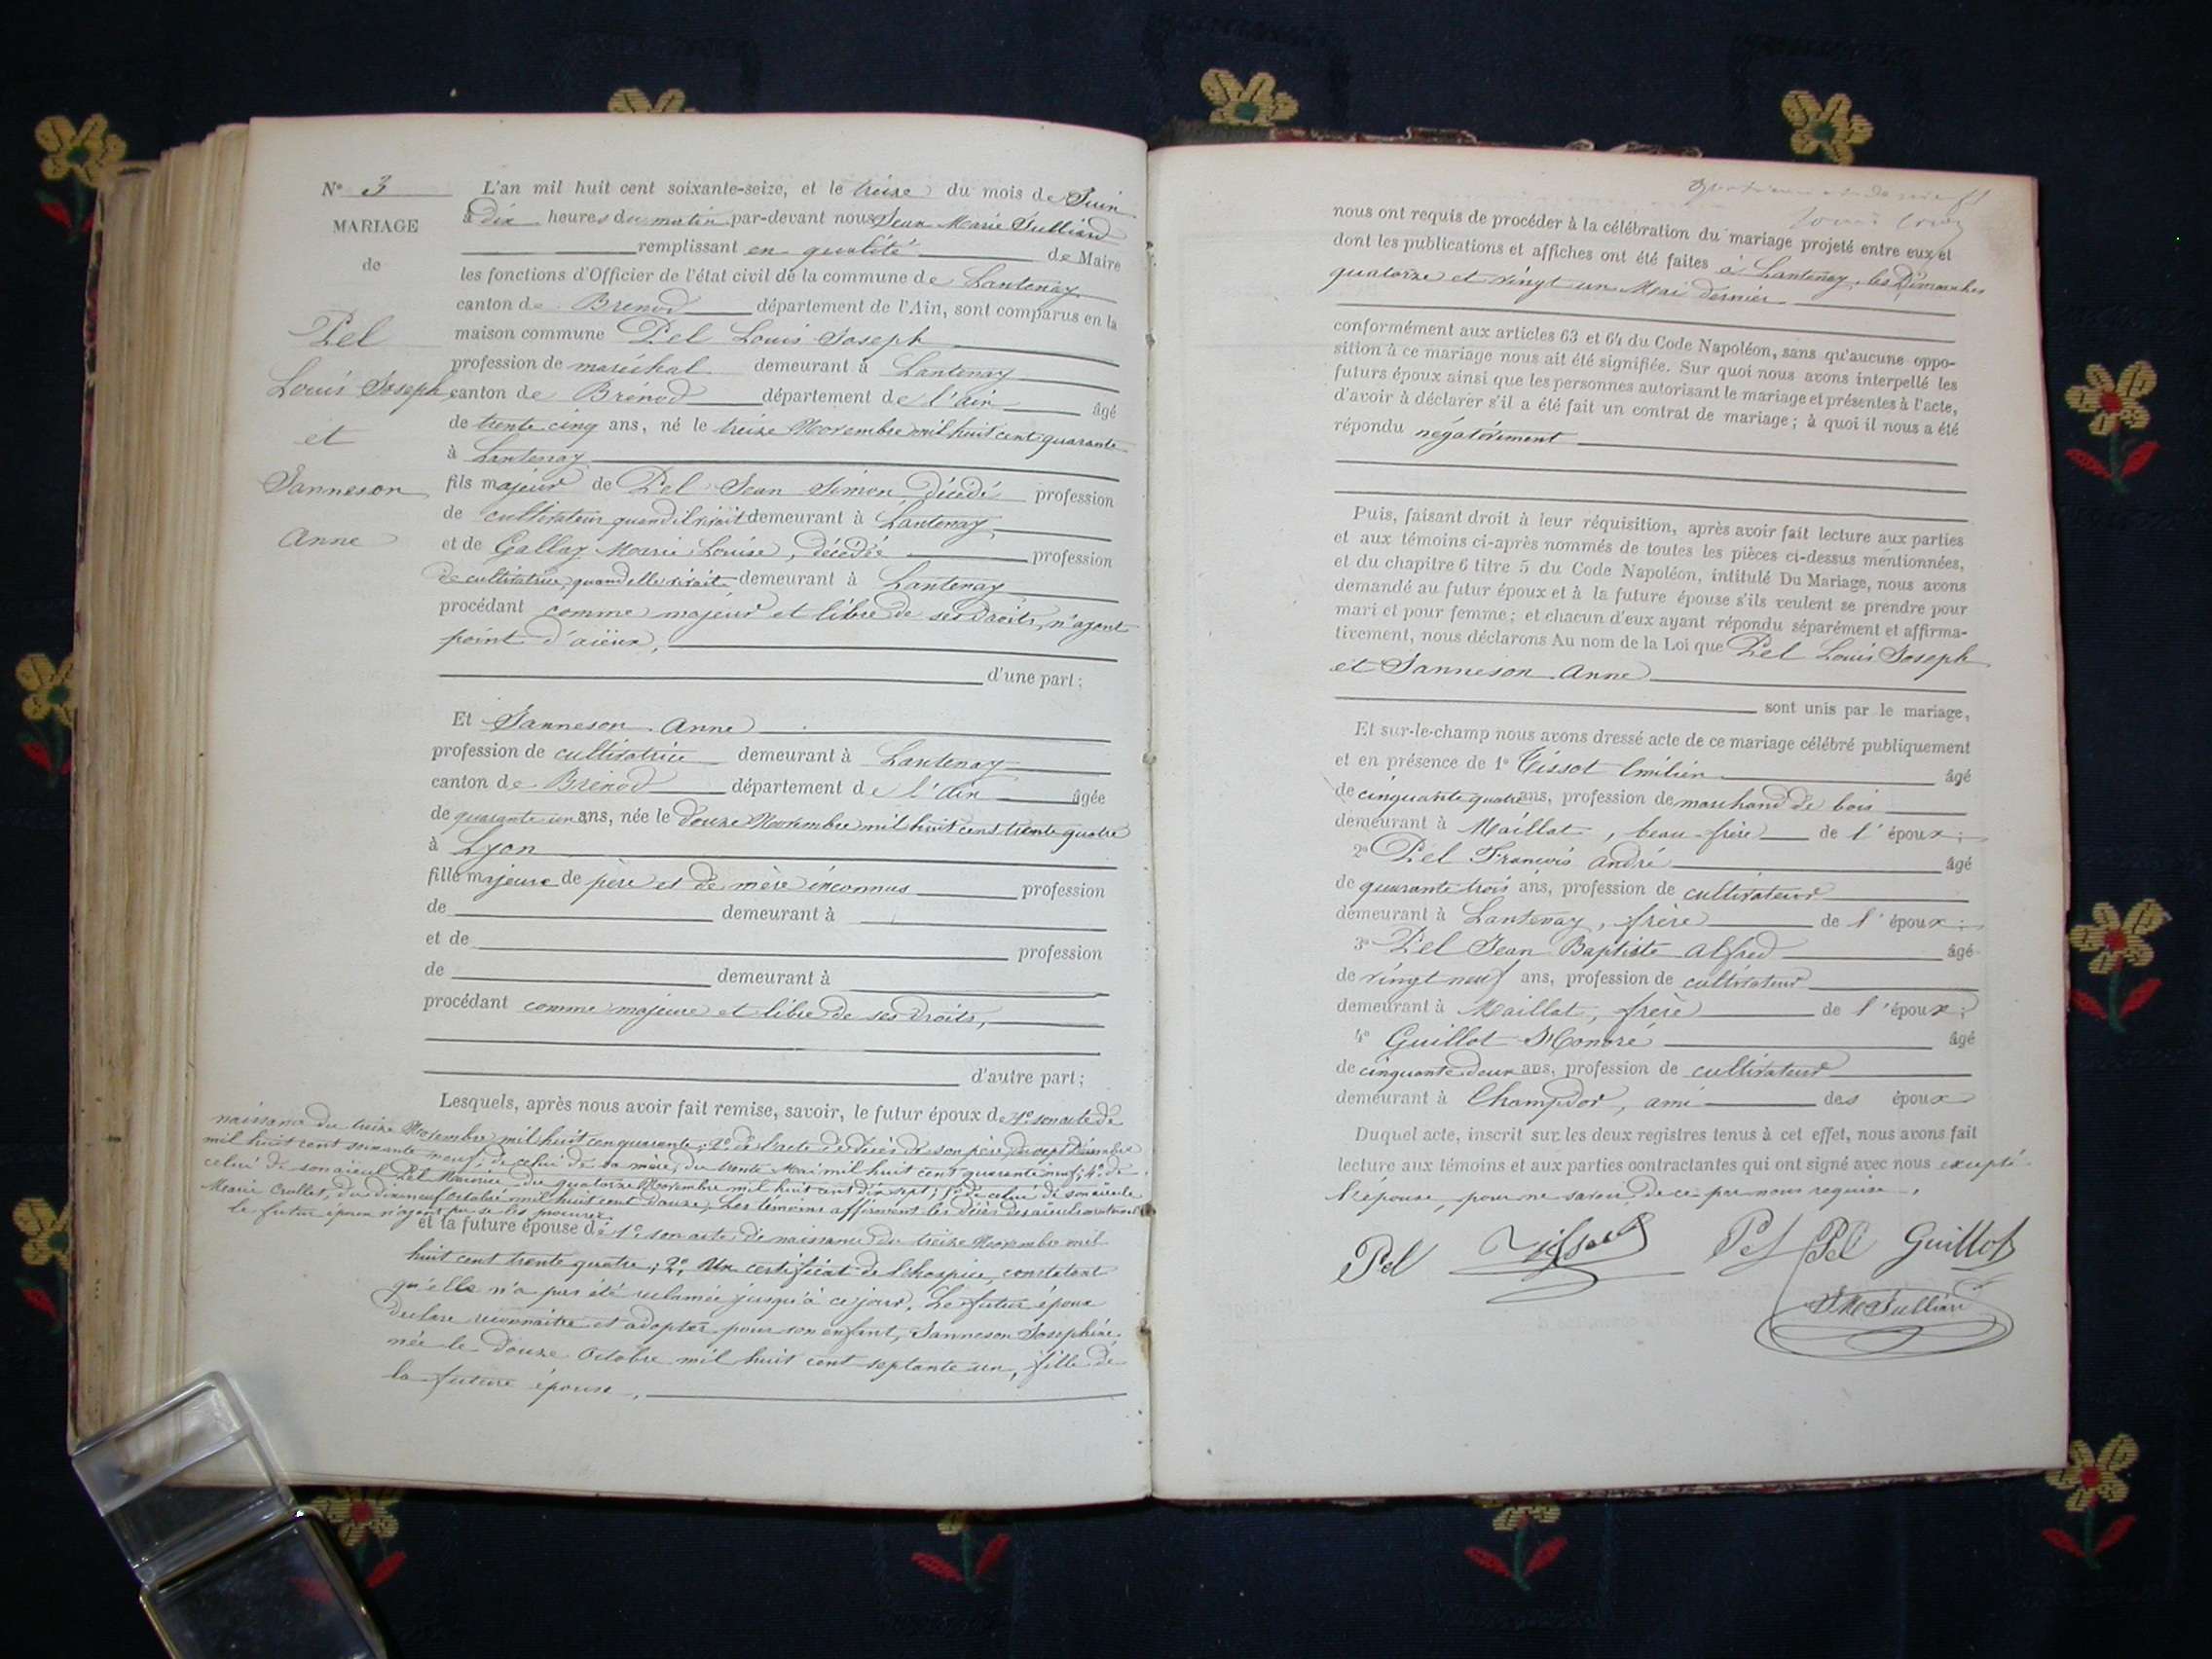 N° 3
MARIAGE
de
Pel
Louis Joseph
et
Janneson
Anne
L'an mil huit cent soixante-seize, et le treize du mois de Juin
à dix heures du matin par-devant nous Jean Marie Julliard
remplissant en qualité de Maire
les fonctions d'Officier de l'état civil de la commune de Lantenay
canton de Brenod département de l'Ain, sont comparus en la
maison commune Pel Louis Joseph
profession de maréchal demeurant à Lantenay
canton de Brénod département de l'Ain âgé
de trente cinq ans, né le treize Novembre mil huit cent quarante
à Lantenay
fils majeur de Pel Jean Simon, décédé profession
de cultivateur quand il vivait demeurant à Lantenay
et de Gallay Marie Louise, décédée profession
de cultivatrice, quand elle vivait demeurant à Lantenay
procédant comme majeur et libre de ses droits, n'ayant
point d'aïeux,
d'une part;
Et Janneson Anne
profession de cultivatrice demeurant à Lantenay
canton de Brénod département de l'Ain âgée
de quarante un ans, née le douze Novembre mil huit cent trente quatre
à Lyon
fille majeure de père et de mère inconnus profession
de demeurant à
et de profession
de demeurant à
procédant comme majeure et libre de ses droits,
d'autre part;
Lesquels, après nous avoir fait remise, savoir, le futur époux de 1° son acte de
naissance du treize Novembre mil huit cent quarante; 2° de l'acte de décès de son père, du sept Décembre
mil huit cent soixante neuf; de celui de sa mère, du trente Mai mil huit cent quarante neuf; 4° de
celui de son aïeul Pel Maurice du quatorze Novembre mil huit cent dix sept; 5° de celui de son aïeule
Marie Crollet, du dix neuf Octobre mil huit cent douze, Les témoins affirmant les décès des aïeuls maternels
le futur époux n'ayant pu se les procurer
et la future épouse de 1° son acte de naissance du treize Novembre mil
huit cent trente quatre; 2° Un certificat de l'hospice, constatant
qu'elle n'a pas été réclamée jusqu'à ce jour. Le futur époux
déclare reconnaître et adopter pour son enfant, Janneson Joséphine,
née le douze Octobre mil huit cent septante un, fille de
la future épouse,
nous ont requis de procéder à la célébration du mariage projeté entre eux et
dont les publications et affiches ont été faites à Lantenay, les Dimanches
quatorze et vingt un Mai dernier
conformément aux articles 63 et 64 du Code Napoléon, sans qu'aucune oppo-
sition à ce mariage nous ait été signifiée. Sur quoi nous avons interpellé les
futurs époux ainsi que les personnes autorisant le mariage et présentes à l'acte,
d'avoir à déclarer s'il a été fait un contrat de mariage; à quoi il nous a été
répondu négativement
Puis, faisant droit à leur réquisition, après avoir fait lecture aux parties
et aux témoins ci-après nommés de toutes les pièces ci-dessus mentionnées,
et du chapitre 6 titre 5 du Code Napoléon, intitulé Du Mariage, nous avons
demandé au futur époux et à la future épouse s'ils veulent se prendre pour
mari et pour femme; et chacun d'eux ayant répondu séparément et affirma-
tivement, nous déclarons Au nom de la Loi que Pel Louis Joseph
et Janneson Anne
sont unis par le mariage,
Et sur-le-champ nous avons dressé acte de ce mariage célébré publiquement
et en présence de 1° Tissot Emilien âgé
de cinquante quatre ans, profession de marchand de bois
demeurant à Maillat, beau-frère de l'époux;
2° Pel François André âgé
de quarante trois ans, profession de cultivateur
demeurant à Lantenay, frère de l'époux;
3° Pel Jean Baptiste Alfred âgé
de vingt neuf ans, profession de cultivateur
demeurant à Maillat, frère de l'époux;
4° Guillot Honoré âgé
de cinquante deux ans, profession de cultivateur
demeurant à Champdor, ami des époux
Duquel acte, inscrit sur les deux registres tenus à cet effet, nous avons fait
lecture aux témoins et aux parties contractantes qui ont signé avec nous excepté
l'épouse, pour ne savoir de ce par nous requise.
Pel Tissot Pel Pel Guillot
J M Julliard